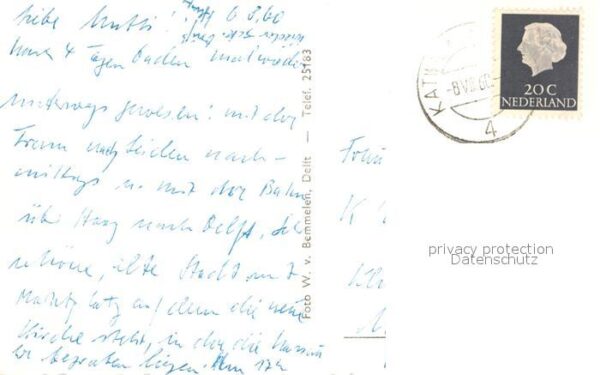 Liebe Mutti! 6.8.60
4 Tagen Baden mal wieder
unterwegs gewesen: mit der
Tram nach Leiden nach-
mittags u. mit der Bahn
über Haag nach Delft.
schöne, alte Stadt m
Marktplatz auf dem die neue
Kirche steht, in der die
begraben liegen.
Foto W. v. Bemmelen, Delft — Telef. 25183
KAT
-8 VIII 60
4
20 C
NEDERLAND
Frau
K
privacy protection
Datenschutz